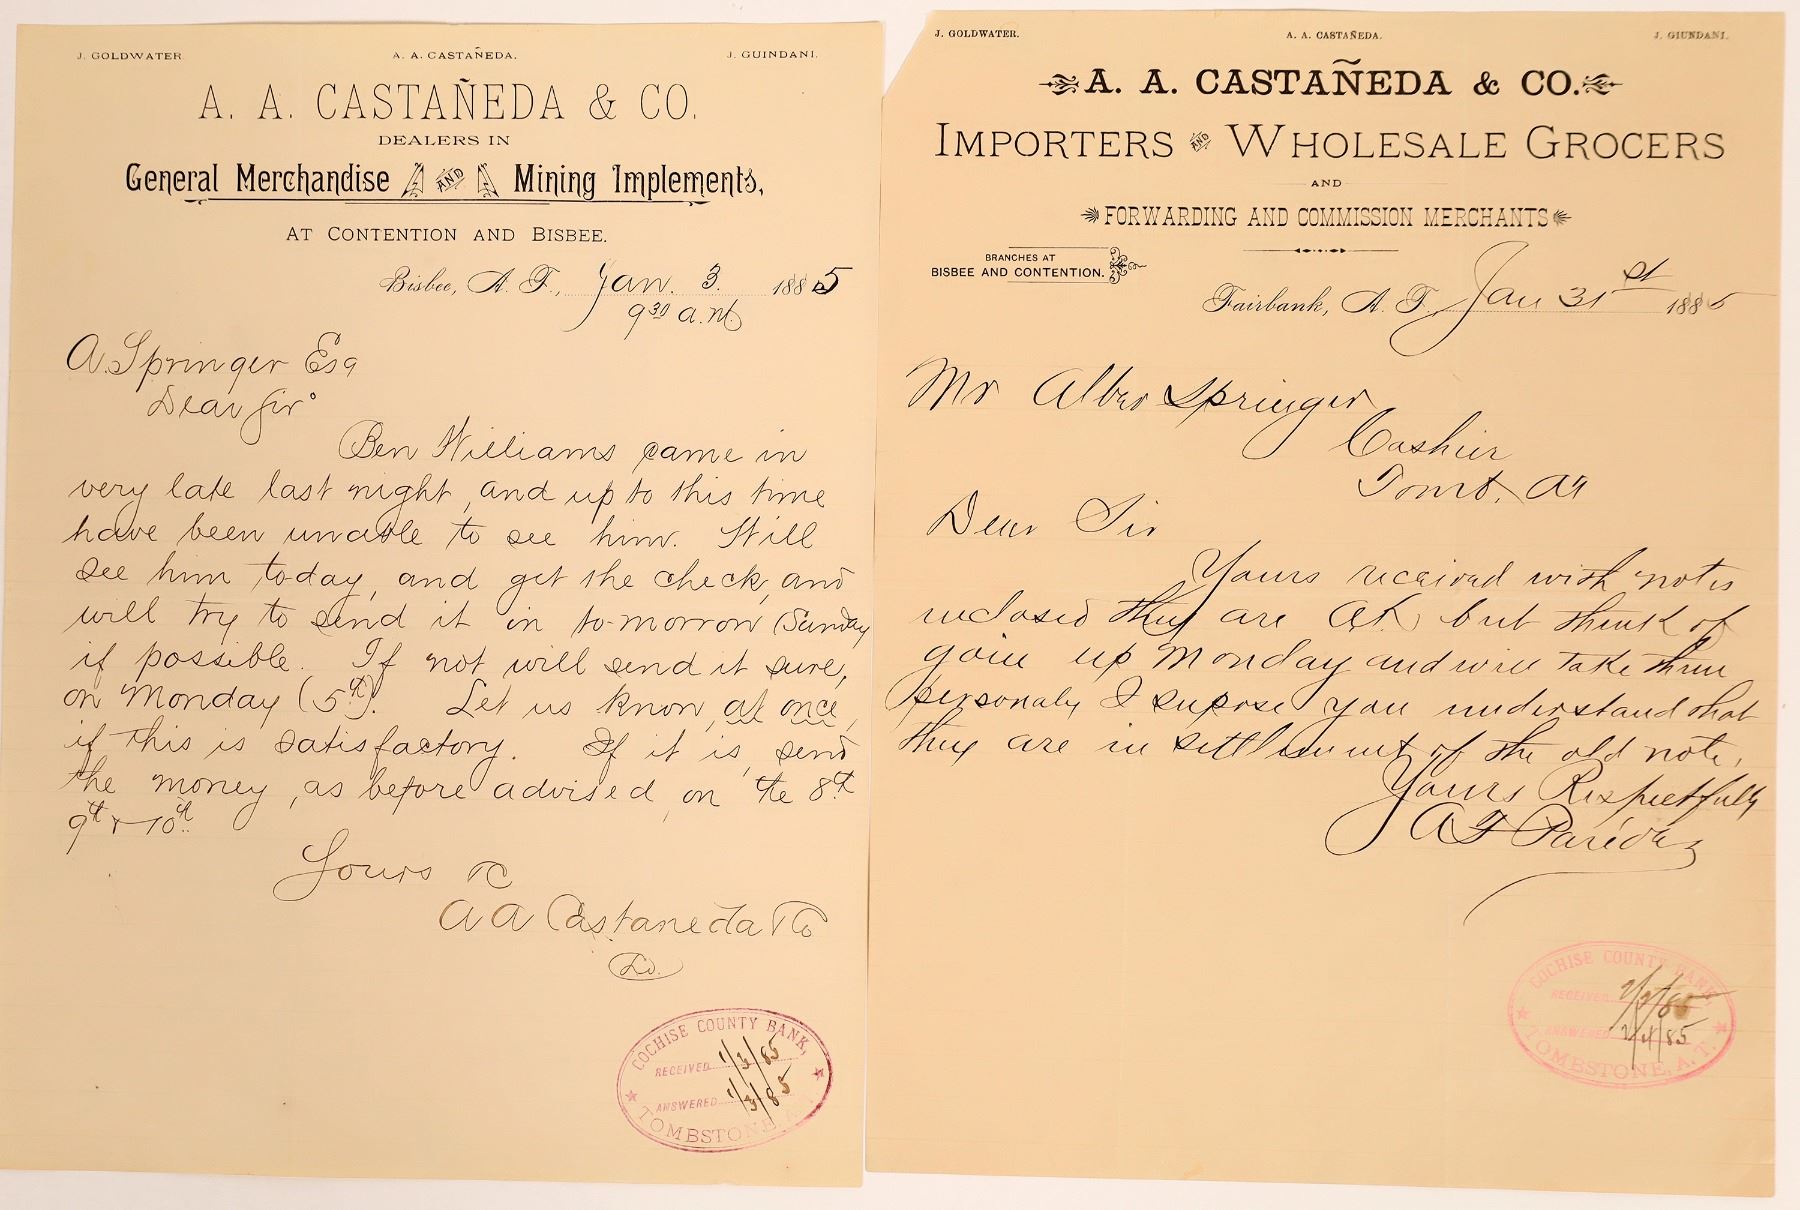 J. GOLDWATER. A. A. CASTAÑEDA. J. GUINDANI.
A. A. CASTAÑEDA & CO.
DEALERS IN
General Merchandise AND Mining Implements,
AT CONTENTION AND BISBEE.
Bisbee, A. T., Jan. 3. 1885
9 30 a.m.
A. Springer Esq
Dear Sir
Ben Williams came in
very late last night, and up to this time
have been unable to see him. Will
see him today, and get the check, and
will try to send it in to-morrow (Sunday
if possible. If not will send it sure,
on Monday (5th). Let us know, at once,
if this is satisfactory. If it is, send
the money, as before advised, on the 8th
9th & 10th.
Yours
A A Castaneda & Co
COCHISE COUNTY BANK,
RECEIVED 1/3/85
ANSWERED 1/3/85
TOMBSTONE, A.T.
J. GOLDWATER. A. A. CASTAÑEDA. J. GIUNDANI.
A. A. CASTAÑEDA & CO.
IMPORTERS AND WHOLESALE GROCERS
AND
FORWARDING AND COMMISSION MERCHANTS
BRANCHES AT
BISBEE AND CONTENTION.
Fairbank, A. T. Jan 31st 1885
Mr Springer
Cashier
Tomb.
Dear Sir
Yours received with notes
inclosed they are but think of
goin up Monday and will take them
personaly I supose you understand that
they are in settlement of the old note,
Yours Respectfully
COCHISE COUNTY BANK,
RECEIVED
ANSWERED 2/4/85
TOMBSTONE, A. T.